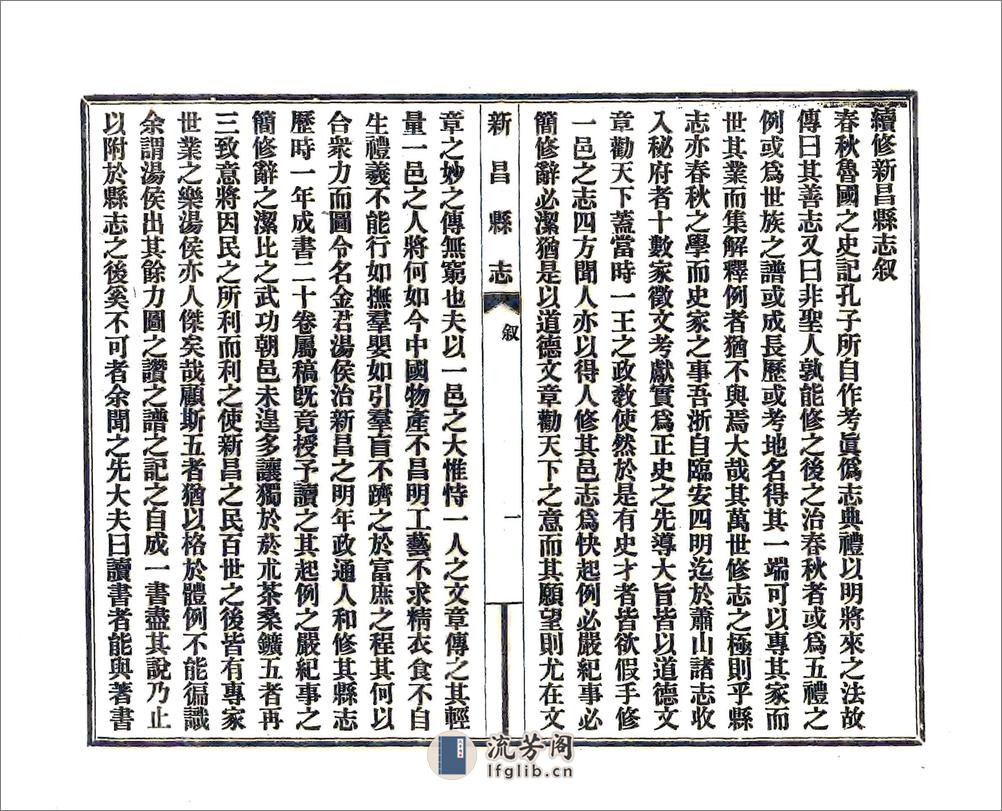 續修新昌縣志叙
春秋魯國之史記孔子所自作考眞僞志典禮以明將來之法故
傳曰其善志又曰非聖人孰能修之後之治春秋者或爲五禮之
例或爲世族之譜或成長歷或考地名得其一端可以專其家而
世其業而集解釋例者猶不與焉大哉其萬世修志之極則乎縣
志亦春秋之學而史家之事吾浙自臨安四明迄於蕭山諸志收
入秘府者十數家徵文考獻實爲正史之先導大旨皆以道德文
章勸天下蓋當時一王之政敎使然於是有史才者皆欲假手修
一邑之志四方聞人亦以得人修其邑志爲快起例必嚴紀事必
簡修辭必潔猶是以道德文章勸天下之意而其願望則尤在文
新昌縣志
叙
一
章之妙之傳無窮也夫以一邑之大惟恃一人之文章傳之其輕
量一邑之人將何如今中國物產不昌明工藝不求精衣食不自
生禮義不能行如撫羣嬰如引羣盲不躋之於富庶之程其何以
合衆力而圖令名金君湯侯治新昌之明年政通人和修其縣志
歷時一年成書二十卷屬稿旣竟授予讀之其起例之嚴紀事之
簡修辭之潔比之武功朝邑未遑多讓獨於菸朮茶桑鑛五者再
三致意將因民之所利而利之使新昌之民百世之後皆有專家
世業之樂湯侯亦人傑矣哉顧斯五者猶以格於體例不能徧識
余謂湯侯出其餘力圖之讚之譜之記之自成一書盡其說乃止
以附於縣志之後奚不可者余聞之先大夫曰讀書者能與著書
流芳阁
lfglib.cn